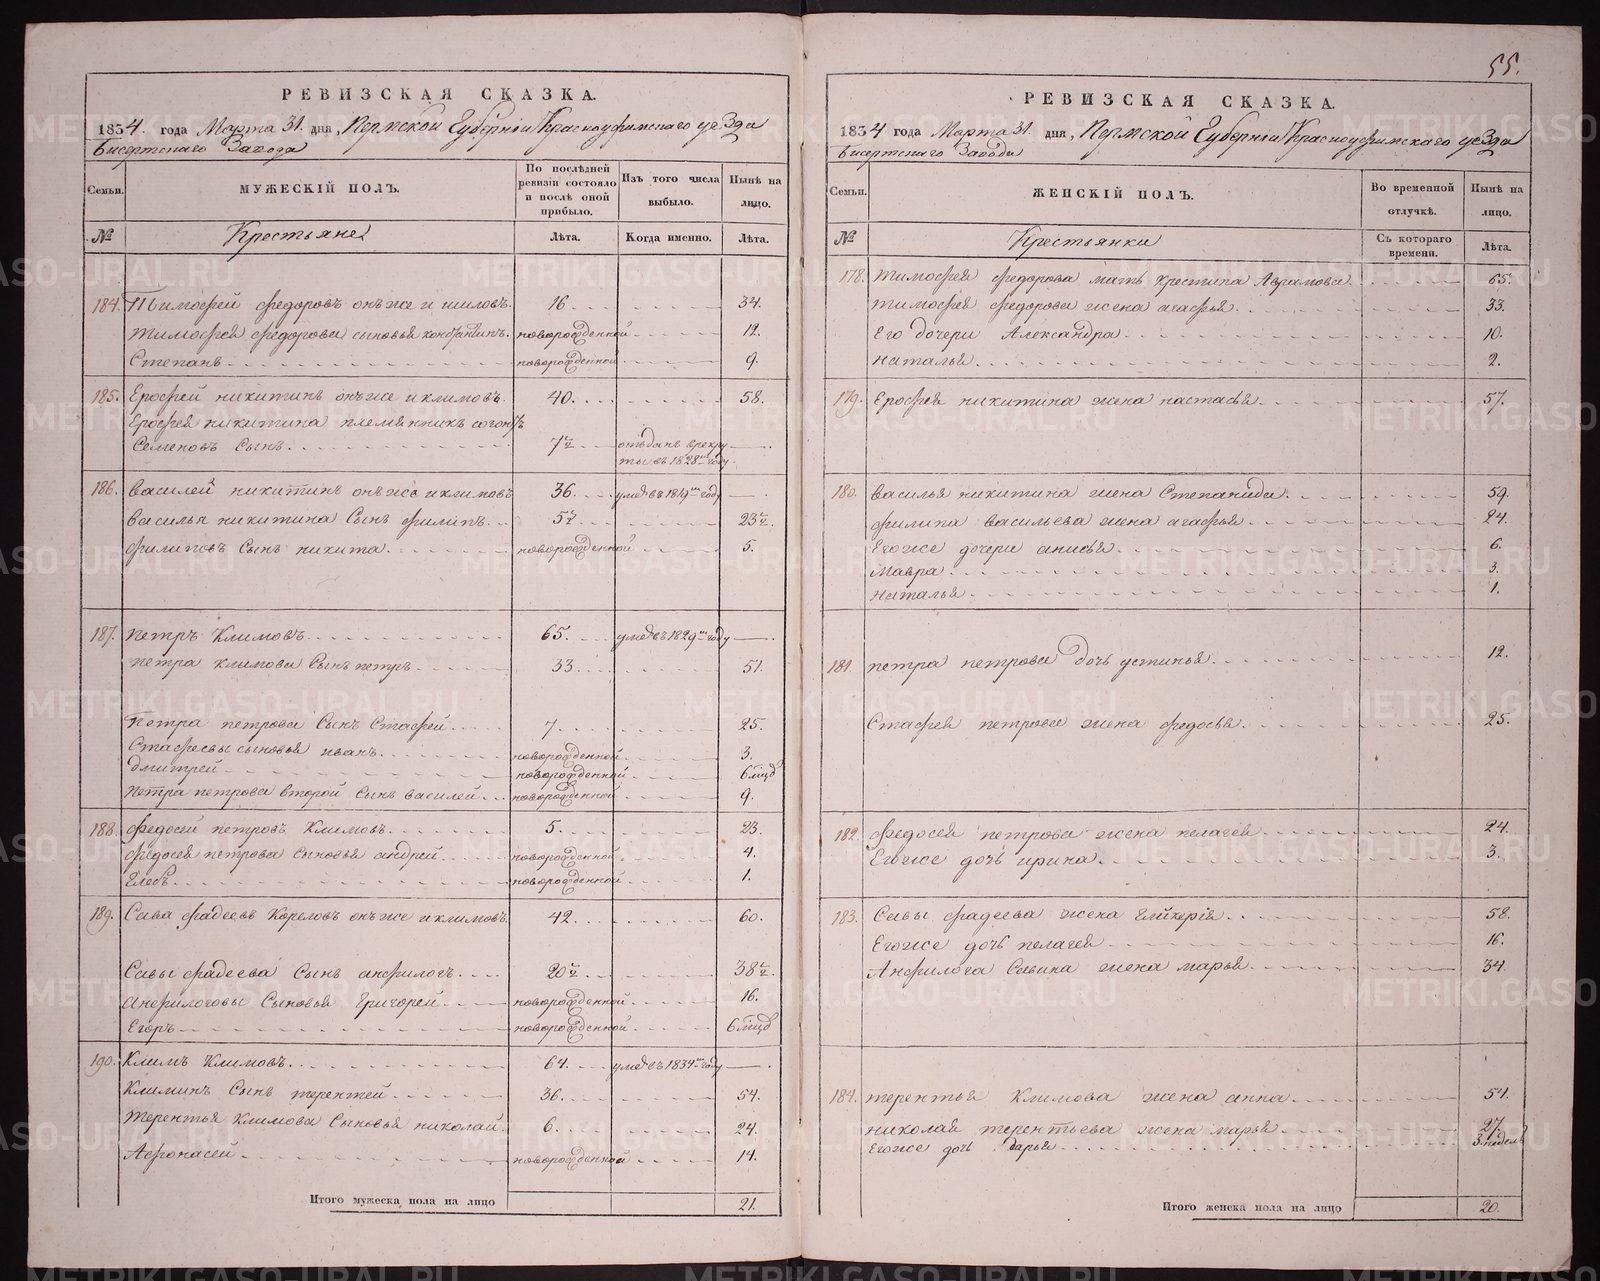 РЕВИЗСКАЯ СКАЗКА.
1834. года Марта 31. дня, Пермской Губерніи Красноуфимскаго уезда
Бисертскаго Завода
Семьи.
МУЖЕСКІЙ ПОЛЪ.
По послѣдней ревизіи состояло и послѣ оной прибыло.
Изъ того числа выбыло.
Нынѣ на лицо.
№
Крестьяне
Лѣта.
Когда именно.
Лѣта.
184. Тимофей федоровъ онъ же и шиловъ. 16. 34.
Тимофея федорова сыновья новорожденной 12.
Степанъ новорожденной 9.
185. Ерофей никитинъ онъ же и климовъ. 40. 58.
Ерофея никитина племянникъ
Семеновъ Сынъ. 7 1/2 отъданъ в рекру
ты въ 1828м году.
186. Василей никитинъ онъ же и климовъ 36. умре въ 1819м году
Василья никитина Сынъ филипъ. 5 1/2 23 1/2.
филиповъ Сынъ никита. новорожденной 5.
187. Петръ Климовъ. 65. умре въ 1829м году
Петра климова Сынъ петръ. 33. 51.
Петра петрова Сынъ Стафей 7. 25.
Стафеевы сыновья иванъ. новорожденной 3.
дмитрей новорожденной 6 мѣцъ
Петра петрова второй Сынъ василей. новорожденной 9.
188. федосей петровъ Климовъ. 5. 23.
федосея петрова Сыновья андрей новорожденной 4.
Глебъ. новорожденной 1.
189. Сава фадеевъ Кореловъ онъ же и климовъ. 42. 60.
Савы фадеева Сынъ анфилогъ. 20 1/2 38 1/2.
Анфилоговы Сыновья Григорей новорожденной 16.
Егоръ новорожденной 6 мѣцъ
190. Климъ Климовъ. 64. умре въ 1834м году
Климинъ Сынъ терентей 36. 54.
Терентья Климова Сыновья николай. 6. 24.
Афонасей. новорожденной 14.
Итого мужеска пола на лицо 21.
55.
РЕВИЗСКАЯ СКАЗКА.
1834 года Марта 31. дня, Пермской Губерніи Красноуфимскаго уезда
Бисертскаго Завода
Семьи.
ЖЕНСКІЙ ПОЛЪ.
Во временной отлучкѣ.
Нынѣ на лицо.
№
Крестьянки
Съ котораго времени.
Лѣта.
178. Тимофея федорова мать крестина 65.
Тимофея федорова жена агафья 33.
Его дочери Александра 10.
наталья 2.
179. Ерофея никитина жена настасья 57.
180. Василья никитина жена Степанида. 59.
филипа васильева жена агафья 24.
Его же дочери анисья 6.
Мавра. 3.
наталья 1.
181. петра петрова дочь устинья. 12.
Стафея петрова жена федосья 25.
182. федосея петрова жена пелагея 24.
Его же дочь ирина. 3.
183. Савы фадеева жена 58.
Его же дочь пелагея 16.
Анфилога Савина жена марья 34.
184. терентья Климова жена анна 54.
николая терентьева жена марья 27.
Его же дочь дарья 3 недель
Итого женска пола на лицо 20.
METRIKI.GASO-URAL.RU